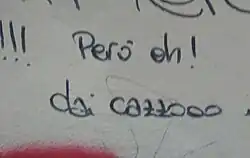 !!! Però oh!
dai cazzooo.